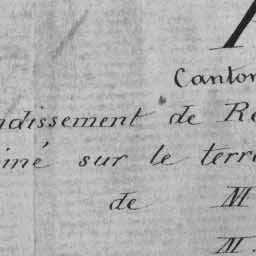 Canton
ndissement de Re
iné sur le terri
de M
M.